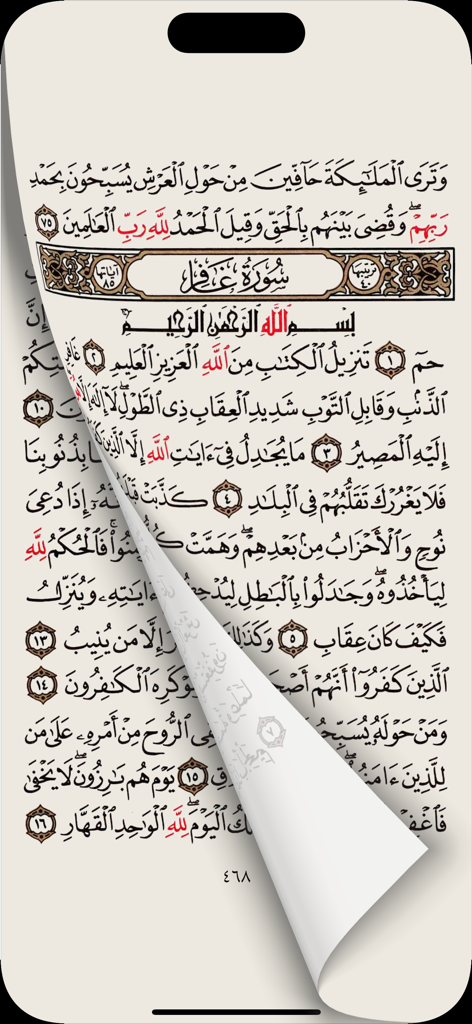 وَتَرَى ٱلْمَلَٰٓئِكَةَ حَآفِّينَ مِنْ حَوْلِ ٱلْعَرْشِ يُسَبِّحُونَ بِحَمْدِ
رَبِّهِمْ ۖ وَقُضِىَ بَيْنَهُم بِٱلْحَقِّ وَقِيلَ ٱلْحَمْدُ لِلَّهِ رَبِّ ٱلْعَٰلَمِينَ ٧٥
ترتيبها ٤٠ سُورَةُ غَافِرٍ آياتها ٨٥
بِسْمِ ٱللَّهِ ٱلرَّحْمَٰنِ ٱلرَّحِيمِ إِنَّ
حمٓ ١ تَنزِيلُ ٱلْكِتَٰبِ مِنَ ٱللَّهِ ٱلْعَزِيزِ ٱلْعَلِيمِ ٢ غَافِرِ
ٱلذَّنۢبِ وَقَابِلِ ٱلتَّوْبِ شَدِيدِ ٱلْعِقَابِ ذِى ٱلطَّوْلِ ۖ لَآ إِلَٰهَ إِلَّا ١٠
إِلَيْهِ ٱلْمَصِيرُ ٣ مَا يُجَٰدِلُ فِىٓ ءَايَٰتِ ٱللَّهِ إِلَّا ٱلَّذِينَ بِذُنُوبِنَا
فَلَا يَغْرُرْكَ تَقَلُّبُهُمْ فِى ٱلْبِلَٰدِ ٤ كَذَّبَتْ إِذَا دُعِىَ
نُوحٍ وَٱلْأَحْزَابُ مِنۢ بَعْدِهِمْ ۖ وَهَمَّتْ فَٱلْحُكْمُ لِلَّهِ
لِيَأْخُذُوهُ ۖ وَجَٰدَلُوا۟ بِٱلْبَٰطِلِ ءَايَٰتِهِۦ وَيُنَزِّلُ
فَكَيْفَ كَانَ عِقَابِ ٥ وَكَذَٰلِكَ إِلَّا مَن يُنِيبُ ١٣
ٱلَّذِينَ كَفَرُوٓا۟ أَنَّهُمْ كَرِهَ ٱلْكَٰفِرُونَ ١٤
وَمَنْ حَوْلَهُۥ ٱلرُّوحَ مِنْ أَمْرِهِۦ عَلَىٰ مَن
لِلَّذِينَ ١٥ يَوْمَ هُم بَٰرِزُونَ ۖ لَا يَخْفَىٰ
ٱلْيَوْمَ ۖ لِلَّهِ ٱلْوَٰحِدِ ٱلْقَهَّارِ ١٦
٤٦٨